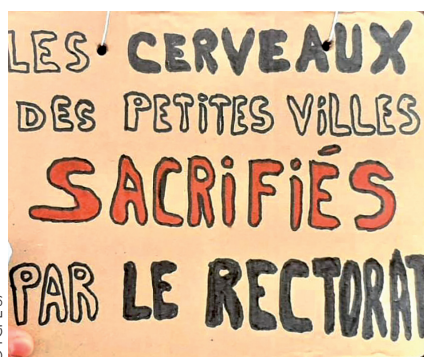 LES CERVEAUX
DES PETiTES ViLLES
SACRiFiÉS
PAR LE RECTORAT